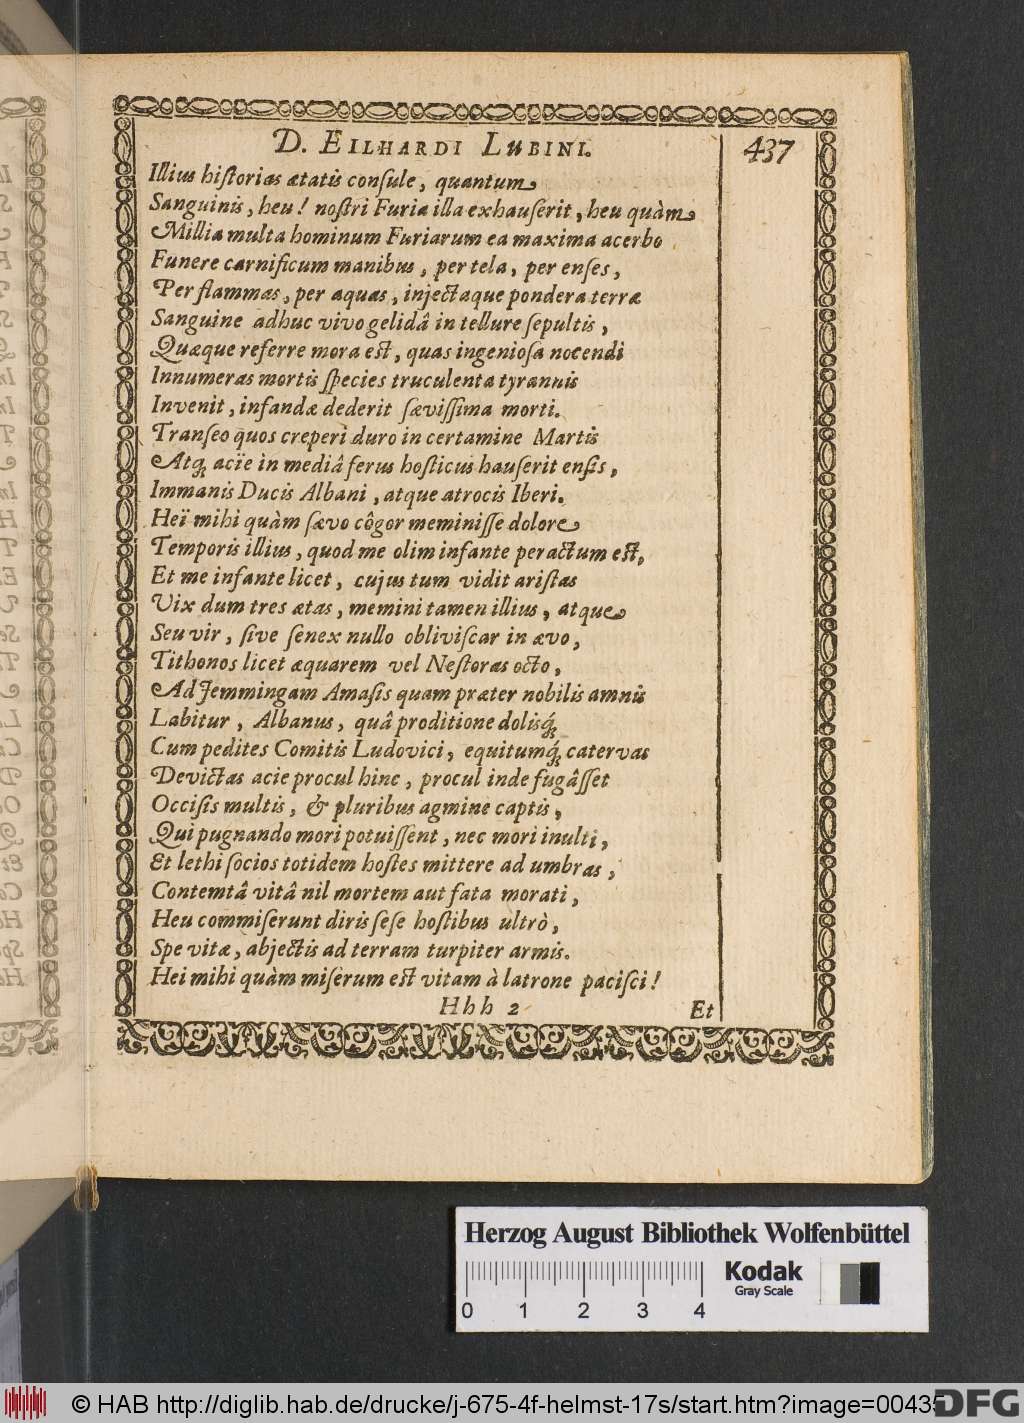 D. EILHARDI LUBINI.
437
Illius historias ætatis consule, quantum
Sanguinis, heu! nostri Furia illa exhauserit, heu quàm
Millia multa hominum Furiarum ea maxima acerbo
Funere carnificum manibus, per tela, per enses,
Per flammas, per aquas, injectaque pondera terræ
Sanguine adhuc vivo gelidâ in tellure sepultis,
Quæque referre mora est, quas ingeniosa nocendi
Innumeras mortis species truculenta tyrannis
Invenit, infandæ dederit sævissima morti.
Transeo quos creperi duro in certamine Martis
Atq; acïe in mediâ ferus hosticus hauserit ensis,
Immanis Ducis Albani, atque atrocis Iberi.
Heï mihi quàm sævo côgor meminisse dolore
Temporis illius, quod me olim infante peractum est,
Et me infante licet, cujus tum vidit aristas
Vix dum tres ætas, memini tamen illius, atque
Seu vir, sive senex nullo obliviscar in ævo,
Tithonos licet æquarem vel Nestoras octo,
Ad Jemmingam Amasis quam præter nobilis amnis
Labitur, Albanus, quâ proditione dolisq́;
Cum pedites Comitis Ludovici, equitumq́; catervas
Devictas acie procul hinc, procul inde fugâsset
Occisis multis, & pluribus agmine captis,
Qui pugnando mori potuissent, nec mori inulti,
Et lethi socios totidem hostes mittere ad umbras,
Contemtâ vitâ nil mortem aut fata morati,
Heu commiserunt diris sese hostibus ultrò,
Spe vitæ, abjectis ad terram turpiter armis.
Hei mihi quàm miserum est vitam à latrone pacisci!
Hhh 2
Et
Herzog August Bibliothek Wolfenbüttel
0 1 2 3 4
Kodak
Gray Scale
© HAB http://diglib.hab.de/drucke/j-675-4f-helmst-17s/start.htm?image=00435
DFG